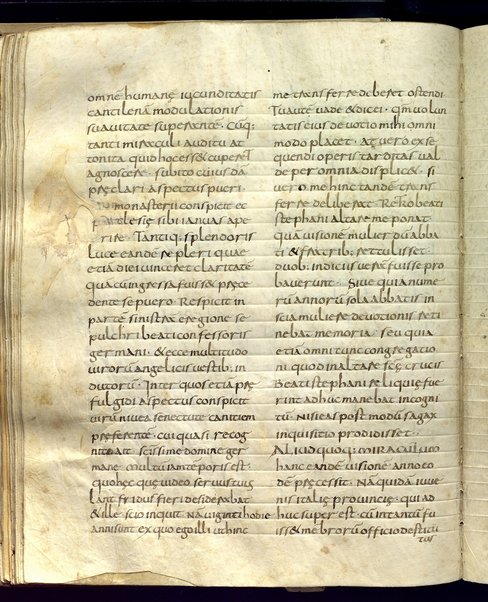 omnē humanę iucunditatis
cantilenā modulationis
suauitate superante. Cūq;
tanti miraculi auditu at
tonita quid hoc ess& cuper&
agnoscere. subito cuiusdā
pręclari aspectus pueri
monasterii conspicit et
ęcclesię sibi ianuas ape
rire. Tantiq; splendoris
luce eandē repleri quae
etiā diei uincer& claritatē
quā cū ingressa fuiss& pręce
dente se puero. Respicit in
parte sinistra e regione se
pulchri beati confessoris
germani. & ecce multitudo
uirorū angelicis uestib; in
dutorū. Inter quos etiā pre
fulgidi aspectus conspicit
uirū niuea senectute canitiem
pręferente. cui quasi recog
nite ait scissime domine ger
mane. multū iā temporis est.
quo hęc quę uideo seruus tuus
lantfridus fieri desiderabat
& ille. scio inquit. Nā uiginti hodie
annı sunt ex quo ego illi ut hinc
me transferre deber& ostendi
Tu autē uade & dicei. qm̄ uolun
tatis eius deuotio mihi omni
modo placet. at uero exse
quendi operis tarditas ual
de per omnia displic&. si
uero me hinc tandē trans
ferre delibera&. Retro beati
stephani altare me ponat
quā uisionē mulier dū abba
ti & fratrib; retulisset.
duob; indiciis uerā fuisse pro
bauerunt. Siue quia nume
rū annorū sola abbatis in
scia muliere deuotionis reti
nebat memoria. seu quia
etiā omni tunc congregatio
ni quod in altare scę crucis
Beati stephani reliquię fue
rint adhuc manebat incogni
tū. Nisi eas post modū sagax
inquisitio prodidisset.
Aliud quoq; miraculum
hanc eandē uisionē anno eo
dē pręcessit. Nā quidā iuue
nis italię prouincię. qui ad
huc superest. cū in tantū fu
iss& mēbrorū officio destitu
tus